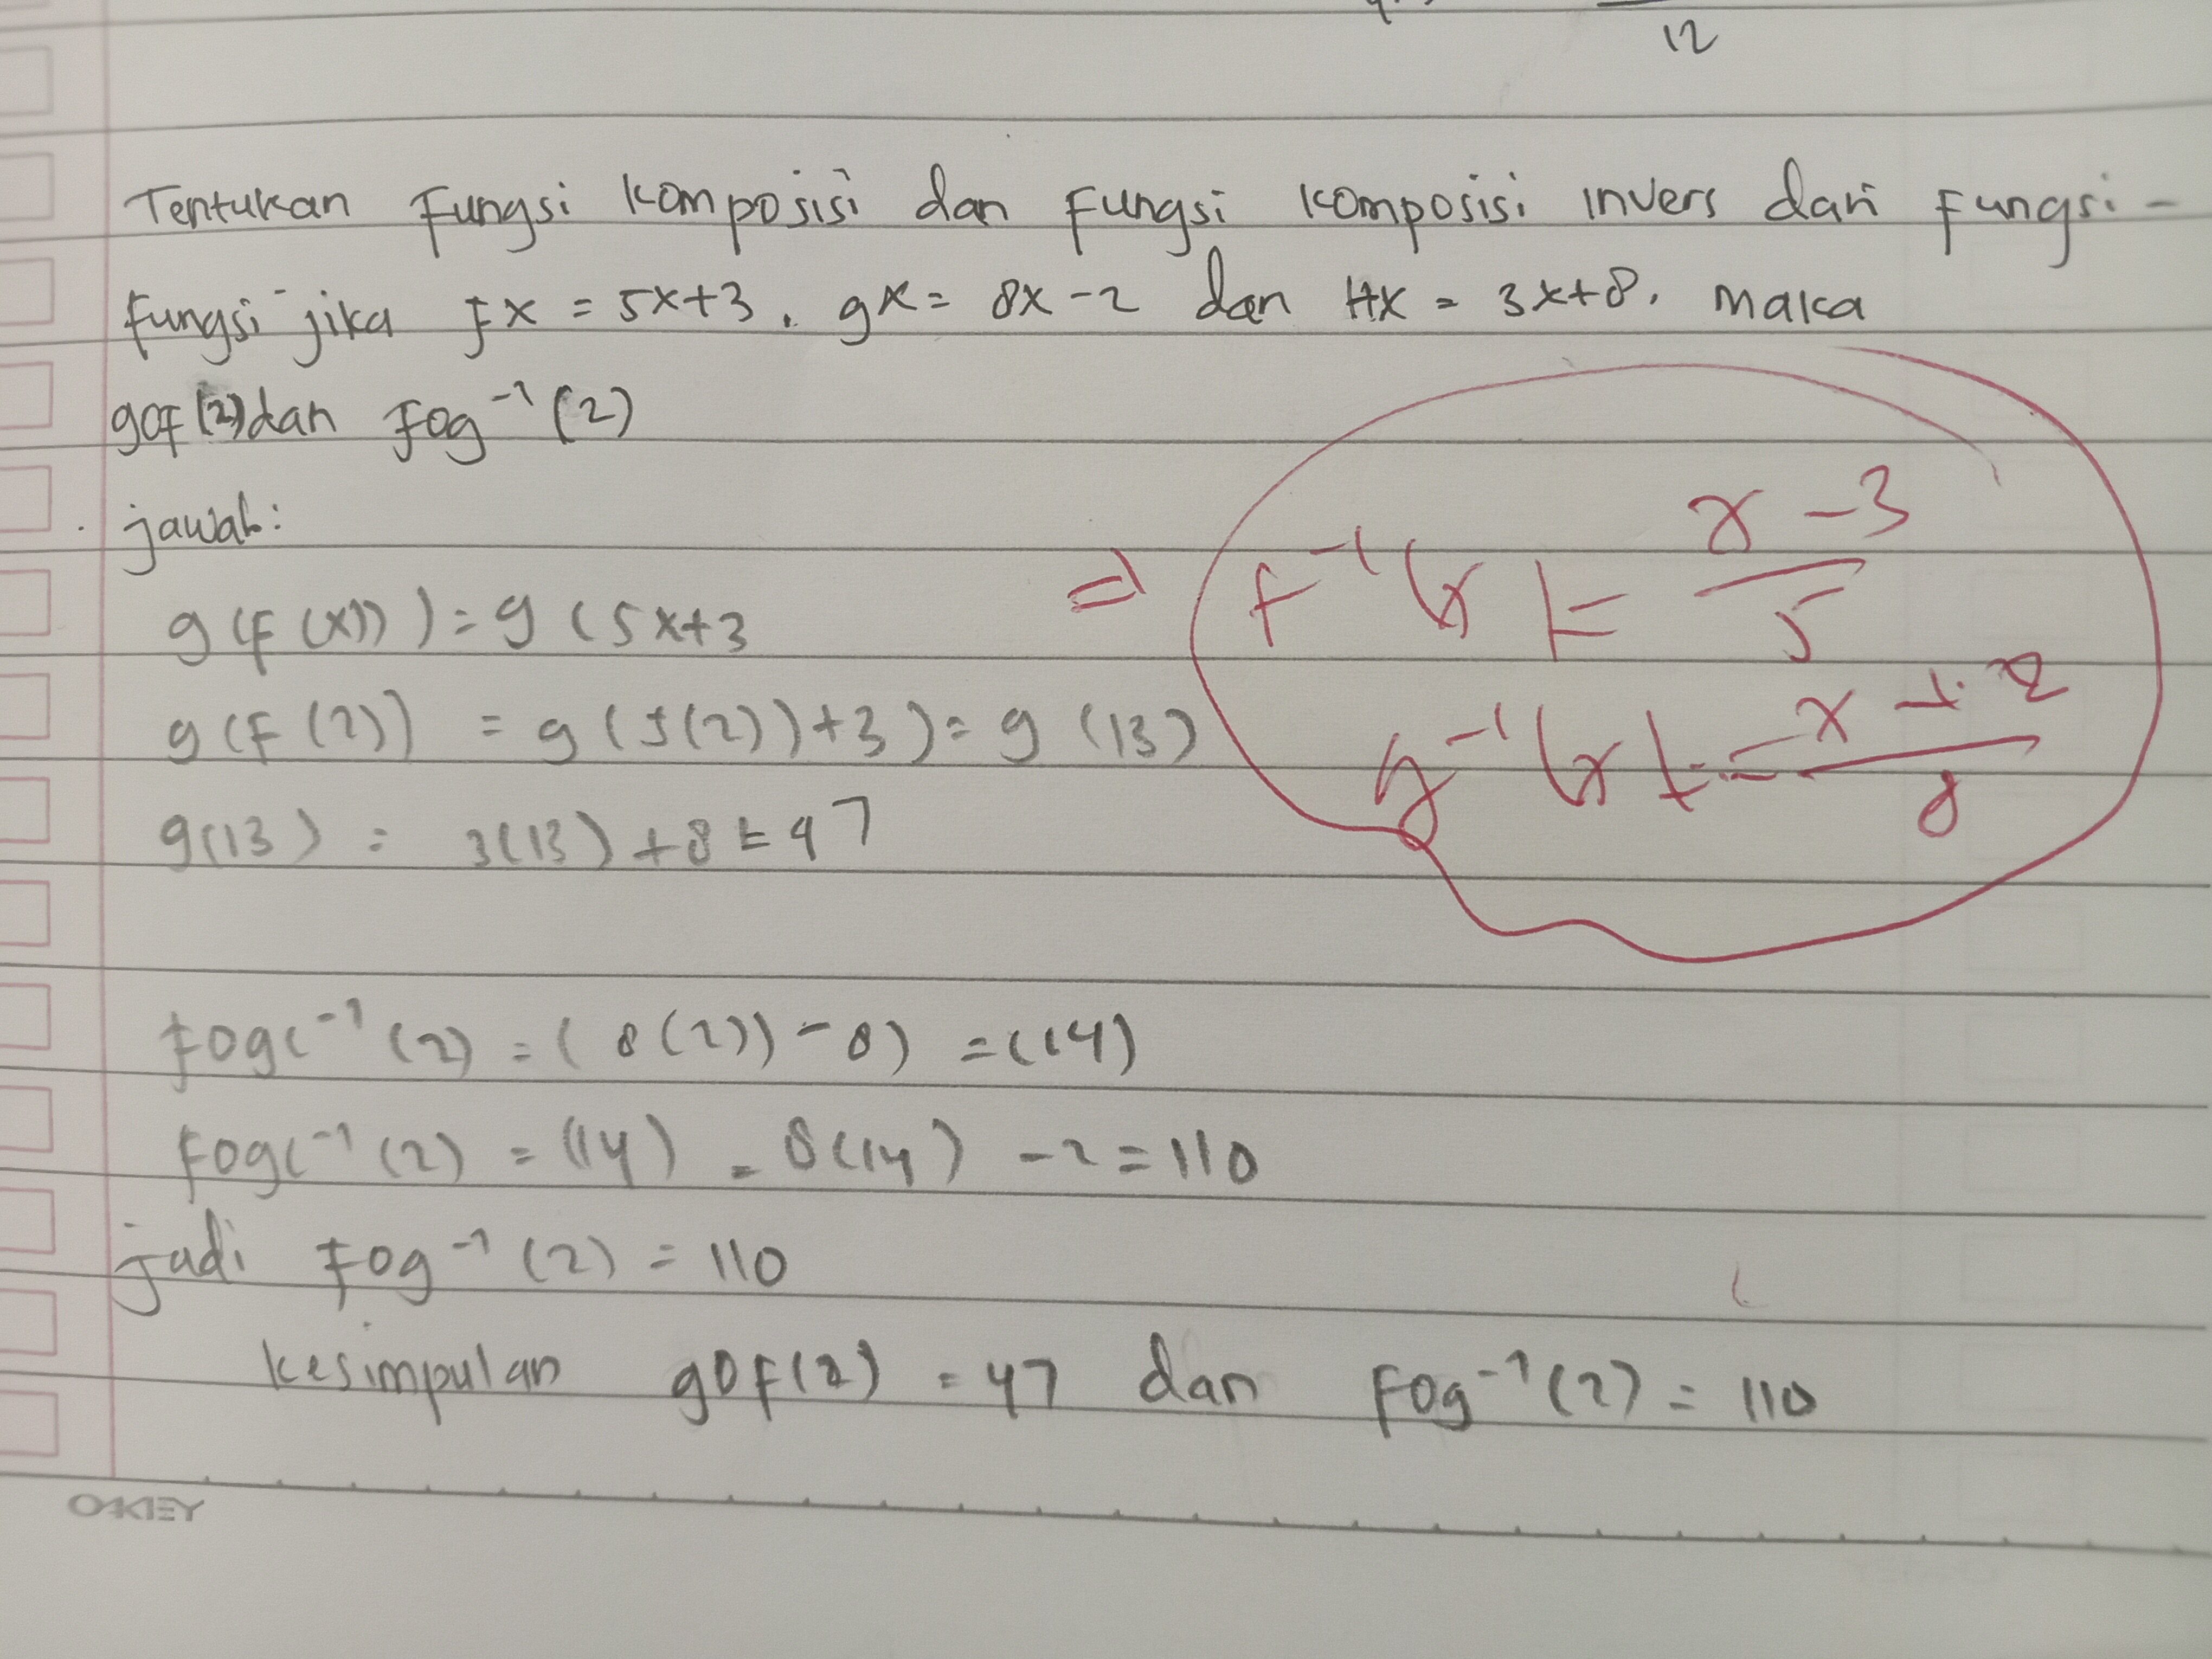 12
Tentukan fungsi komposisi dan fungsi komposisi invers dari fungsi-
fungsi jika fx = 5x+3, gx = 8x-2 dan Hx = 3x+8. maka
gof(2)dan fog⁻¹(2)
jawab:
g(f(x)) = g(5x+3
g(f(2)) = g(5(2))+3) = g(13)
g(13) = 3(13)+8=47
⇒ f⁻¹(x) = x-3/5
g⁻¹(x) = x+2/8
fog(⁻¹(2) = (8(2))-8) =(14)
fog(⁻¹(2) = (14) = 8(14) -2 = 110
jadi fog⁻¹(2) = 110
kesimpulan gof(2) = 47 dan fog⁻¹(2) = 110
OKEY